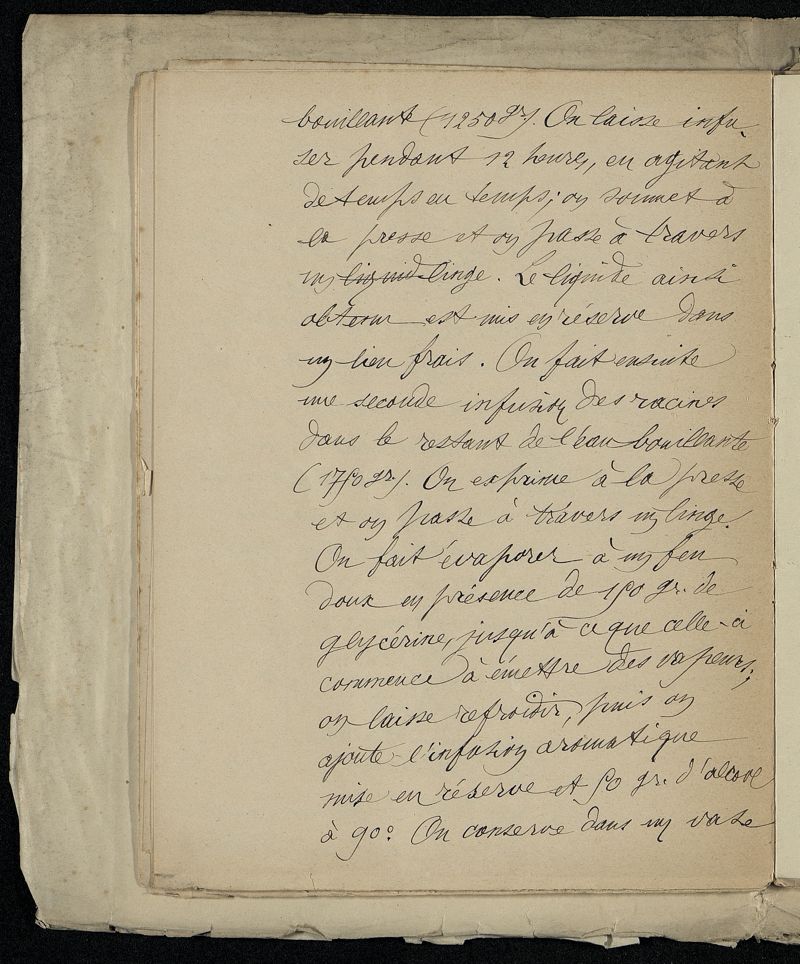 bouillante (1250 gr). On laisse infu-
ser pendant 12 heures, en agitant
de temps en temps; on soumet à
la presse et on passe à travers
un liquid linge. Le liquide ainsi
obtenu est mis en réserve dans
un lieu frais. On fait ensuite
une seconde infusion des racines
dans le restant de l'eau bouillante
(1750 gr.). On exprime à la presse
et on passe à travers un linge.
On fait évaporer à un feu
doux en présence de 150 gr. de
glycérine, jusqu'à ce que celle-ci
commence à émettre des vapeurs;
on laisse refroidir, puis on
ajoute l'infusion aromatique
mise en réserve et 50 gr. d'alcool
à 90°. On conserve dans un vase